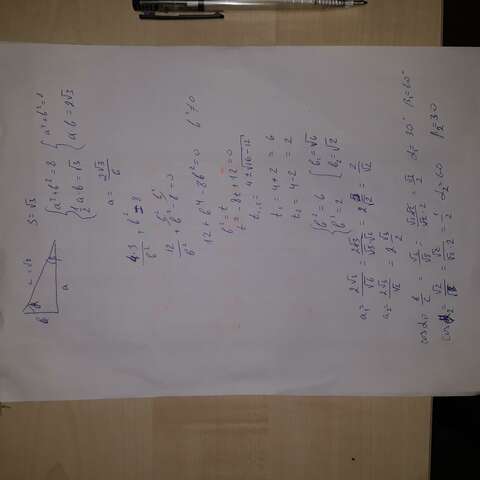 c = √8
b
a
S=√3
{ a²+b²=8
½ab=√3
{ a²+b²=8
ab=2√3
a = 2√3/b
4·3/b² + b² = 8
12/b² + b² - 8 = 0
12 + b⁴ - 8b² = 0 b² ≠ 0
b² = t
t² - 8t + 12 = 0
t₁,₂ = 4 ± √16-12
t₁ = 4+2 = 6
t₂ = 4-2 = 2
{ b² = 6
b² = 2
{ b₁ = √6
b₂ = √2
a₁ = 2√3/√6 = 2√3/√3·√2 = 2/√2
a₂ = 2√3/√2
cosα₁ = b/c = √6/√8 = √3·√2/√2·2 = √3/2 α₁ = 30° β₁=60°
cosα₂ = √2/√8 = √2/√2·2 = 1/2 α₂=60 β₂=30